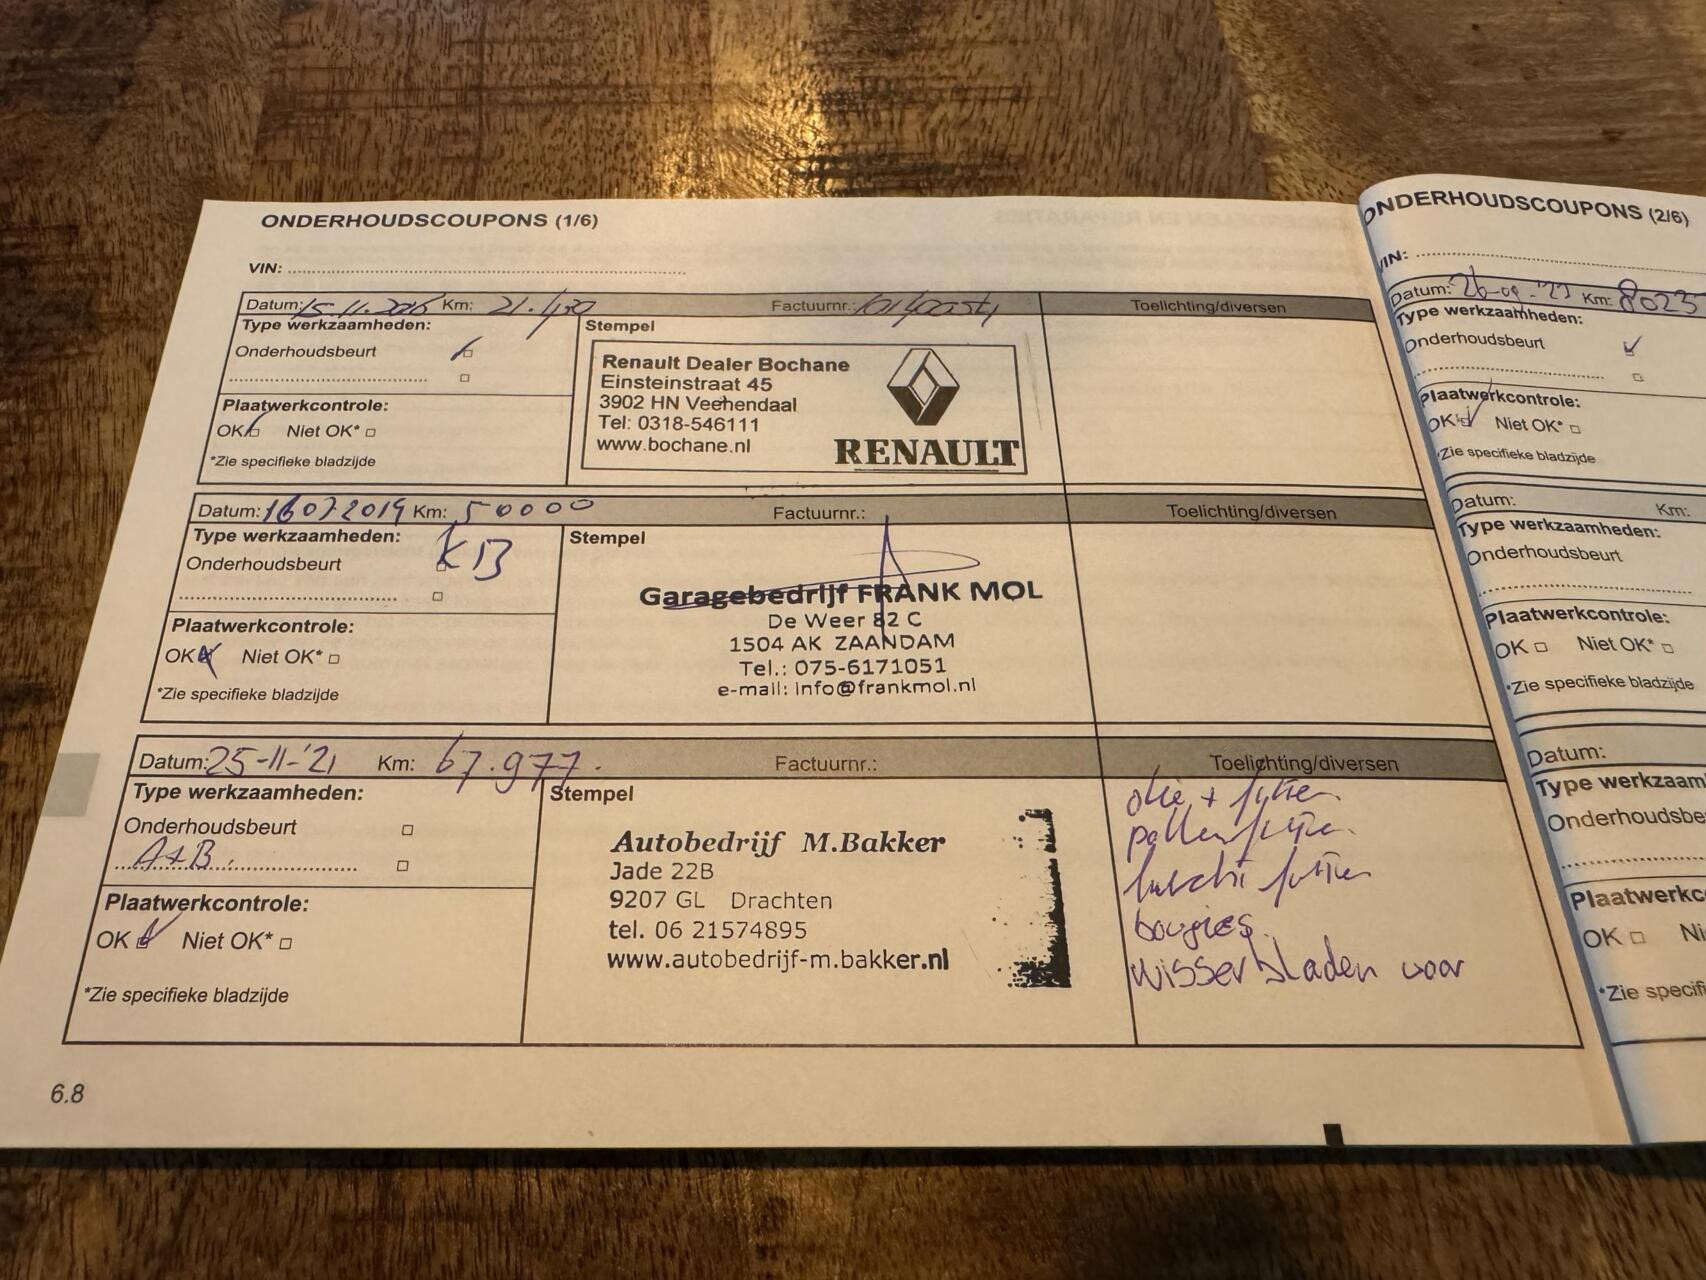 ONDERHOUDSCOUPONS (1/6)
VIN:
Datum: 15.11.2016 Km: 21.430 Factuurnr.: Toelichting/diversen
Type werkzaamheden:
Onderhoudsbeurt
Plaatwerkcontrole:
OK Niet OK*
*Zie specifieke bladzijde
Stempel
Renault Dealer Bochane
Einsteinstraat 45
3902 HN Veenendaal
Tel: 0318-546111
www.bochane.nl
RENAULT
Datum: 16072019 Km: 50000 Factuurnr.: Toelichting/diversen
Type werkzaamheden:
Onderhoudsbeurt
Plaatwerkcontrole:
OK Niet OK*
*Zie specifieke bladzijde
Stempel
Garagebedrijf FRANK MOL
De Weer 82 C
1504 AK ZAANDAM
Tel.: 075-6171051
e-mail: info@frankmol.nl
Datum: 25-11-'21 Km: 67.977. Factuurnr.: Toelichting/diversen
Type werkzaamheden:
Onderhoudsbeurt
A+B.
Plaatwerkcontrole:
OK Niet OK*
*Zie specifieke bladzijde
Stempel
Autobedrijf M.Bakker
Jade 22B
9207 GL Drachten
tel. 06 21574895
www.autobedrijf-m.bakker.nl
olie + filter
pollenfilter.
lucht filter
bougies.
wisserbladen voor
6.8
ONDERHOUDSCOUPONS (2/6)
VIN:
Datum: Km: 8023
Type werkzaamheden:
Onderhoudsbeurt
Plaatwerkcontrole:
OK Niet OK*
*Zie specifieke bladzijde
Datum: Km:
Type werkzaamheden:
Onderhoudsbeurt
Plaatwerkcontrole:
OK Niet OK*
*Zie specifieke bladzijde
Datum:
Type werkzaam
Onderhoudsbe
Plaatwerkc
OK Ni
*Zie specifi